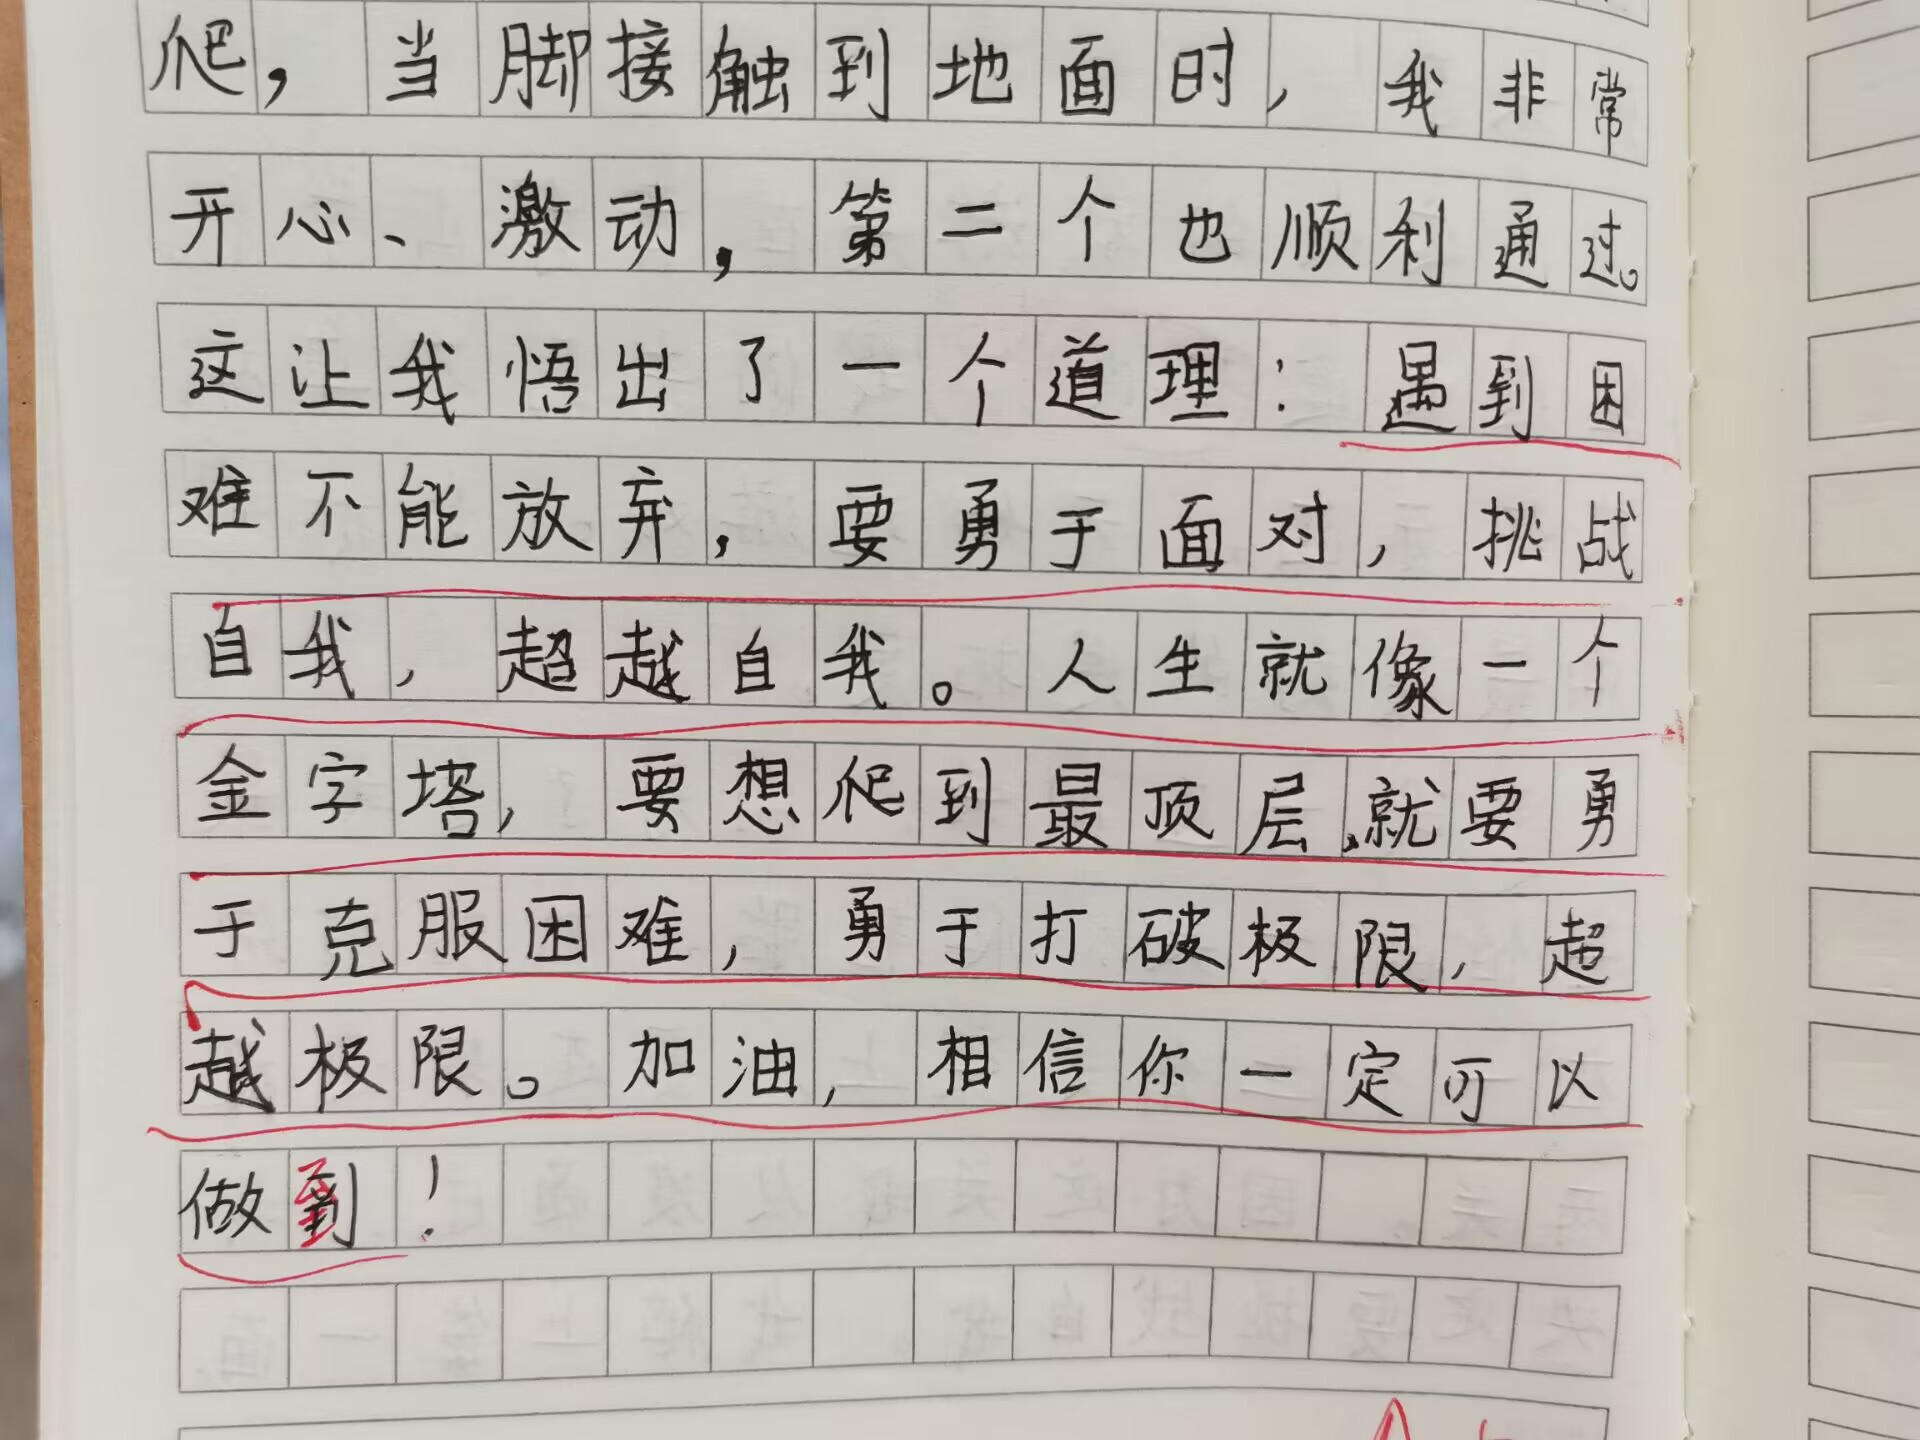 爬，当脚接触到地面时，我非常
开心、激动，第二个也顺利通过。
这让我悟出了一个道理：遇到困
难不能放弃，要勇于面对，挑战
自我，超越自我。人生就像一个
金字塔，要想爬到最顶层，就要勇
于克服困难，勇于打破极限，超
越极限。加油，相信你一定可以
做到！